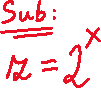 Sub:
z = 2^x